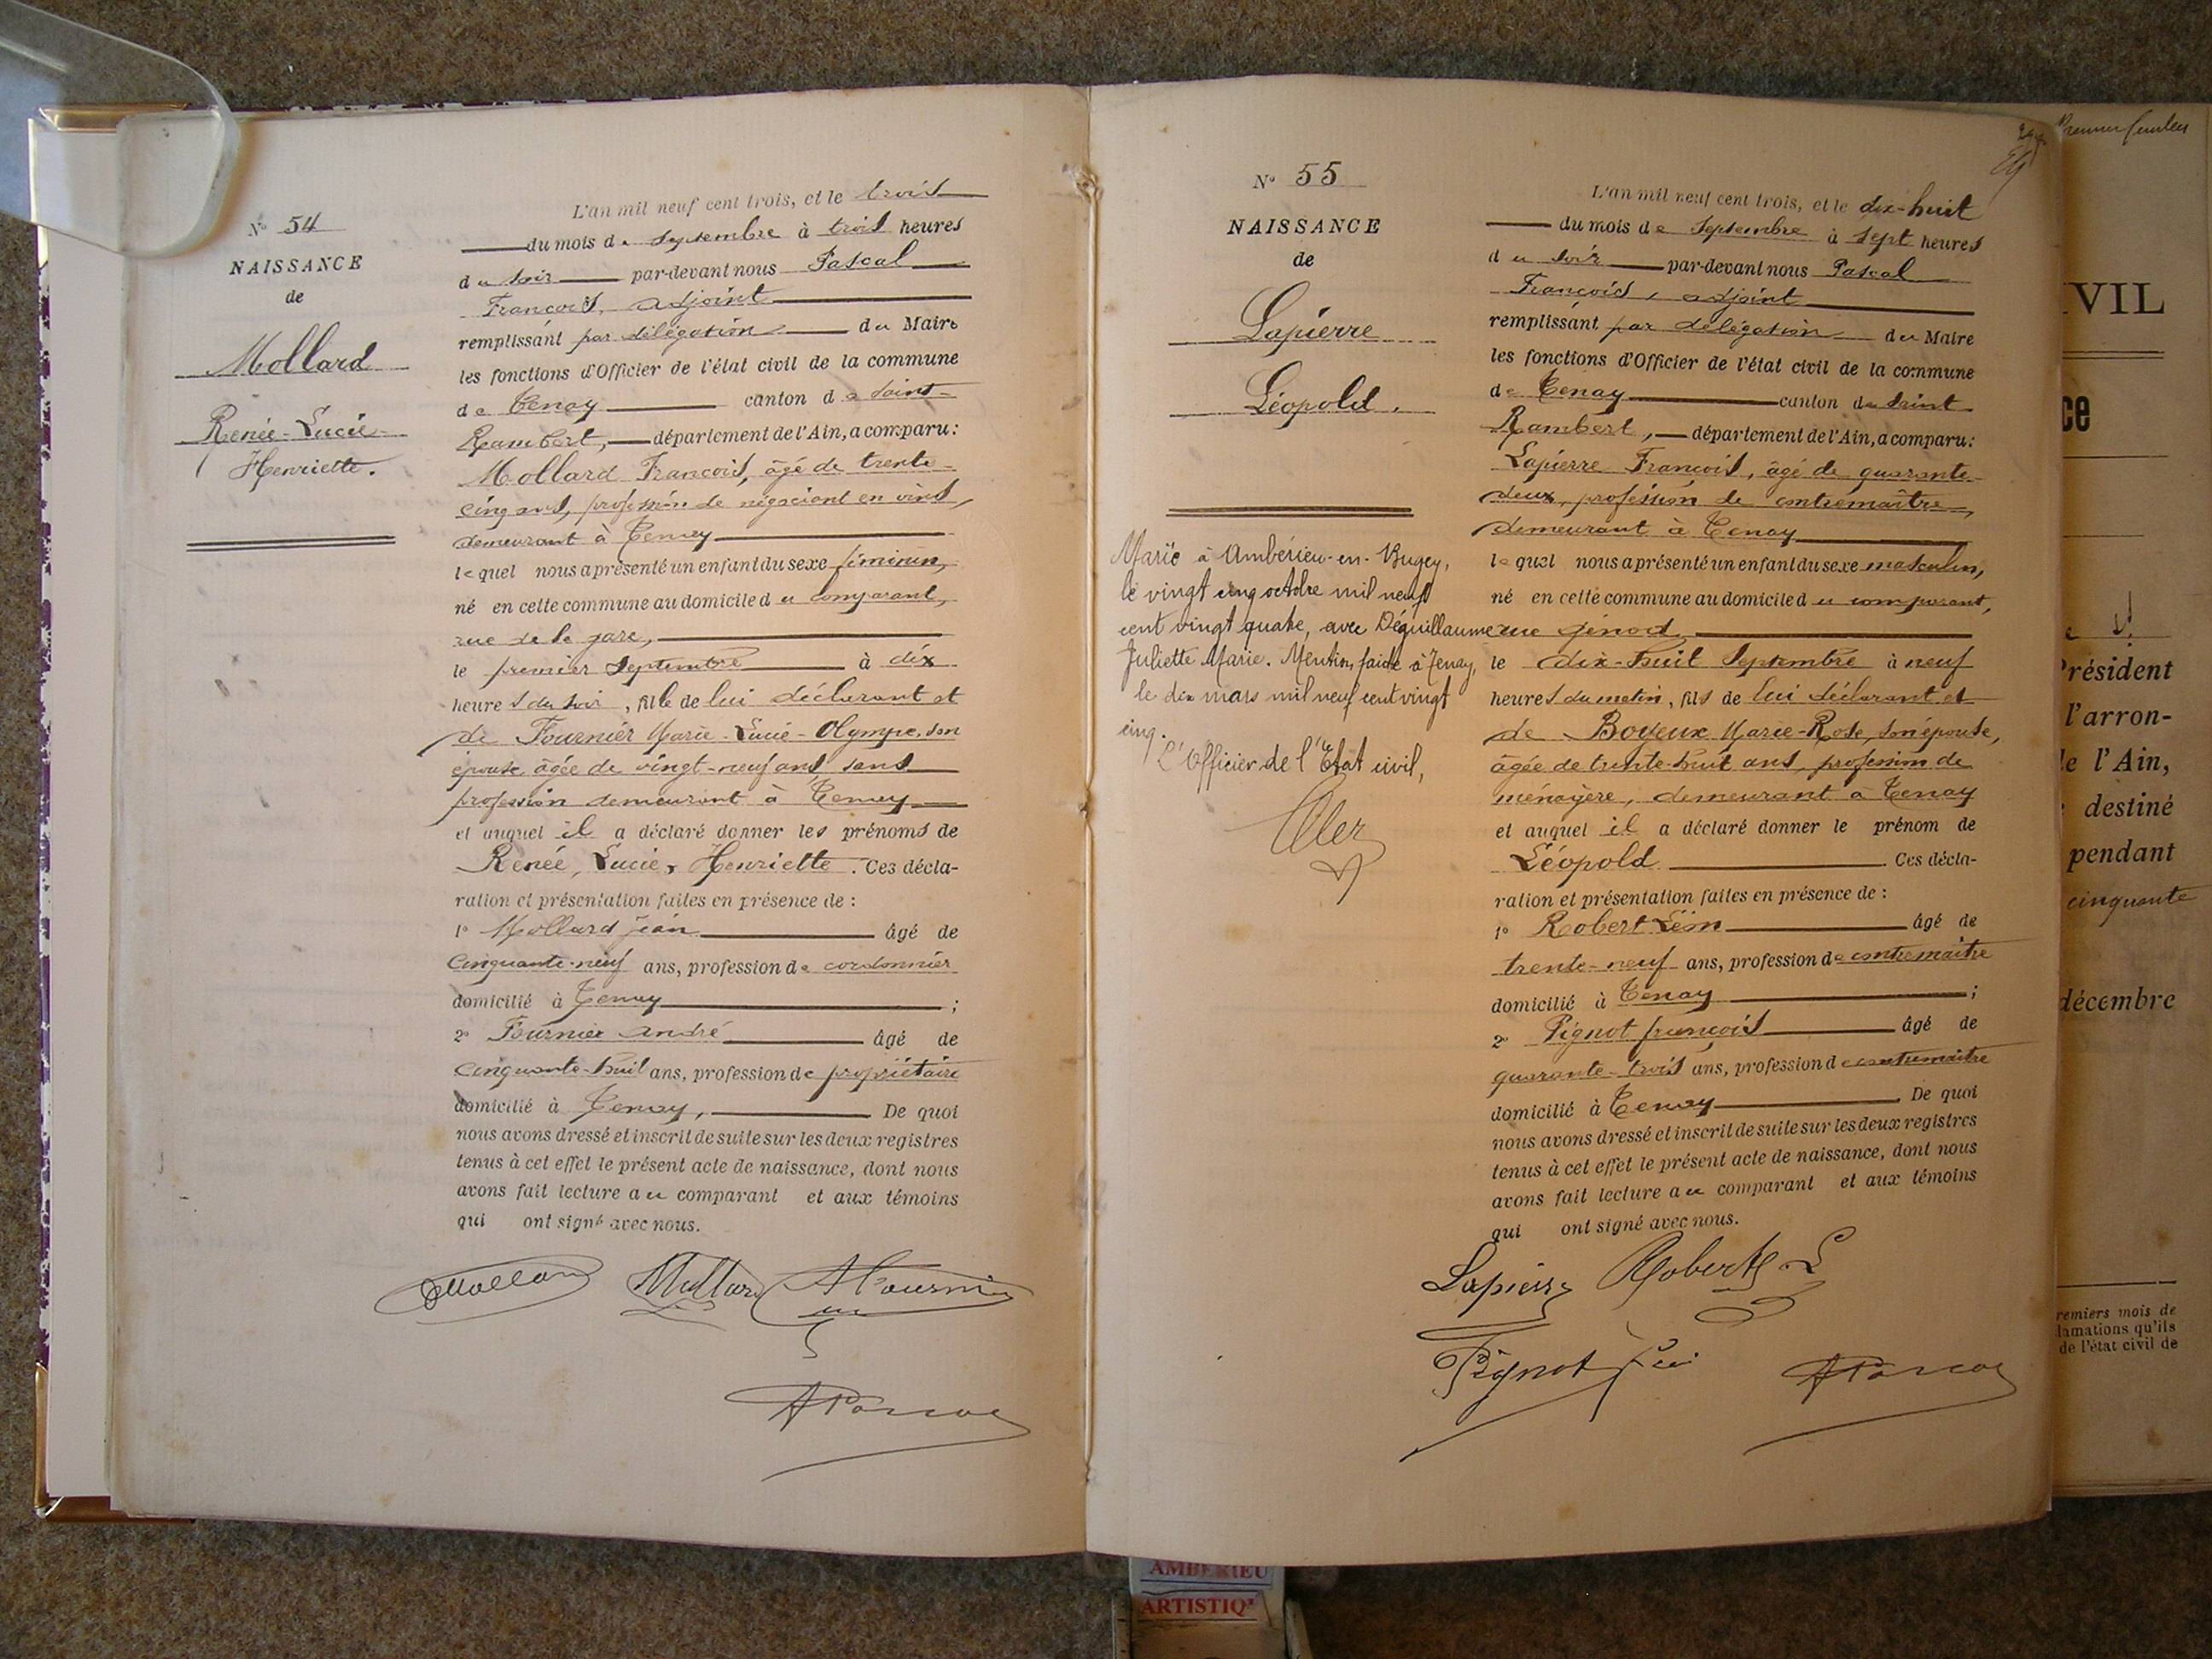 N° 54
NAISSANCE
de
Mollard
Renée-Lucie-
Henriette.
L'an mil neuf cent trois, et le trois
du mois de Septembre à trois heures
du soir par-devant nous Pascal
François, adjoint
remplissant par délégation du Maire
les fonctions d'Officier de l'état civil de la commune
de Tenay canton de Saint-
Rambert, département de l'Ain, a comparu:
Mollard François, âgé de trente-
cinq ans, profession de négociant en vins,
demeurant à Tenay
lequel nous a présenté un enfant du sexe féminin,
né en cette commune au domicile du comparant,
rue de la gare,
le premier Septembre à dix
heures du soir, fille de lui déclarant et
de Fournier Marie-Lucie-Olympe, son
épouse, âgée de vingt-neuf ans, sans
profession demeurant à Tenay
et auquel il a déclaré donner les prénoms de
Renée, Lucie, Henriette. Ces décla-
ration et présentation faites en présence de :
1° Mollard Jean âgé de
cinquante-neuf ans, profession de cordonnier
domicilié à Tenay ;
2° Fournier André âgé de
cinquante-huit ans, profession de propriétaire
domicilié à Tenay, De quoi
nous avons dressé et inscrit de suite sur les deux registres
tenus à cet effet le présent acte de naissance, dont nous
avons fait lecture au comparant et aux témoins
qui ont signé avec nous.
Mollard Mollard A Fournier
APascal
N° 55
NAISSANCE
de
Lapierre
Léopold.
Marié à Ambérieu-en-Bugey,
le vingt cinq octobre mil neuf
cent vingt quatre, avec Déguillaume
Juliette Marie. Mention faite à Tenay,
le dix mars mil neuf cent vingt
cinq.
L'Officier de l'Etat civil,
L'an mil neuf cent trois, et le dix-huit
du mois de Septembre à sept heures
du soir par-devant nous Pascal
François, adjoint
remplissant par délégation du Maire
les fonctions d'Officier de l'état civil de la commune
de Tenay canton de Saint
Rambert, département de l'Ain, a comparu:
Lapierre François, âgé de quarante-
deux, profession de contremaître,
demeurant à Tenay
lequel nous a présenté un enfant du sexe masculin,
né en cette commune au domicile du comparant,
rue Génod,
le dix-huit Septembre à neuf
heures du matin, fils de lui déclarant et
de Boyeux Marie-Rose, son épouse,
âgée de trente-huit ans, profession de
ménagère, demeurant à Tenay
et auquel il a déclaré donner le prénom de
Léopold. Ces décla-
ration et présentation faites en présence de :
1° Robert Léon âgé de
trente-neuf ans, profession de contremaître
domicilié à Tenay ;
2° Pignot François âgé de
quarante-trois ans, profession de contremaître
domicilié à Tenay. De quoi
nous avons dressé et inscrit de suite sur les deux registres
tenus à cet effet le présent acte de naissance, dont nous
avons fait lecture au comparant et aux témoins
qui ont signé avec nous.
Lapierre Robert L
Pignot
APascal
Premier feuillet
IVIL
ce
Président
l'arron-
de l'Ain,
destiné
pendant
cinquante
décembre
remiers mois de
lamations qu'ils
de l'état civil de
AMBERIEU
ARTISTIQ